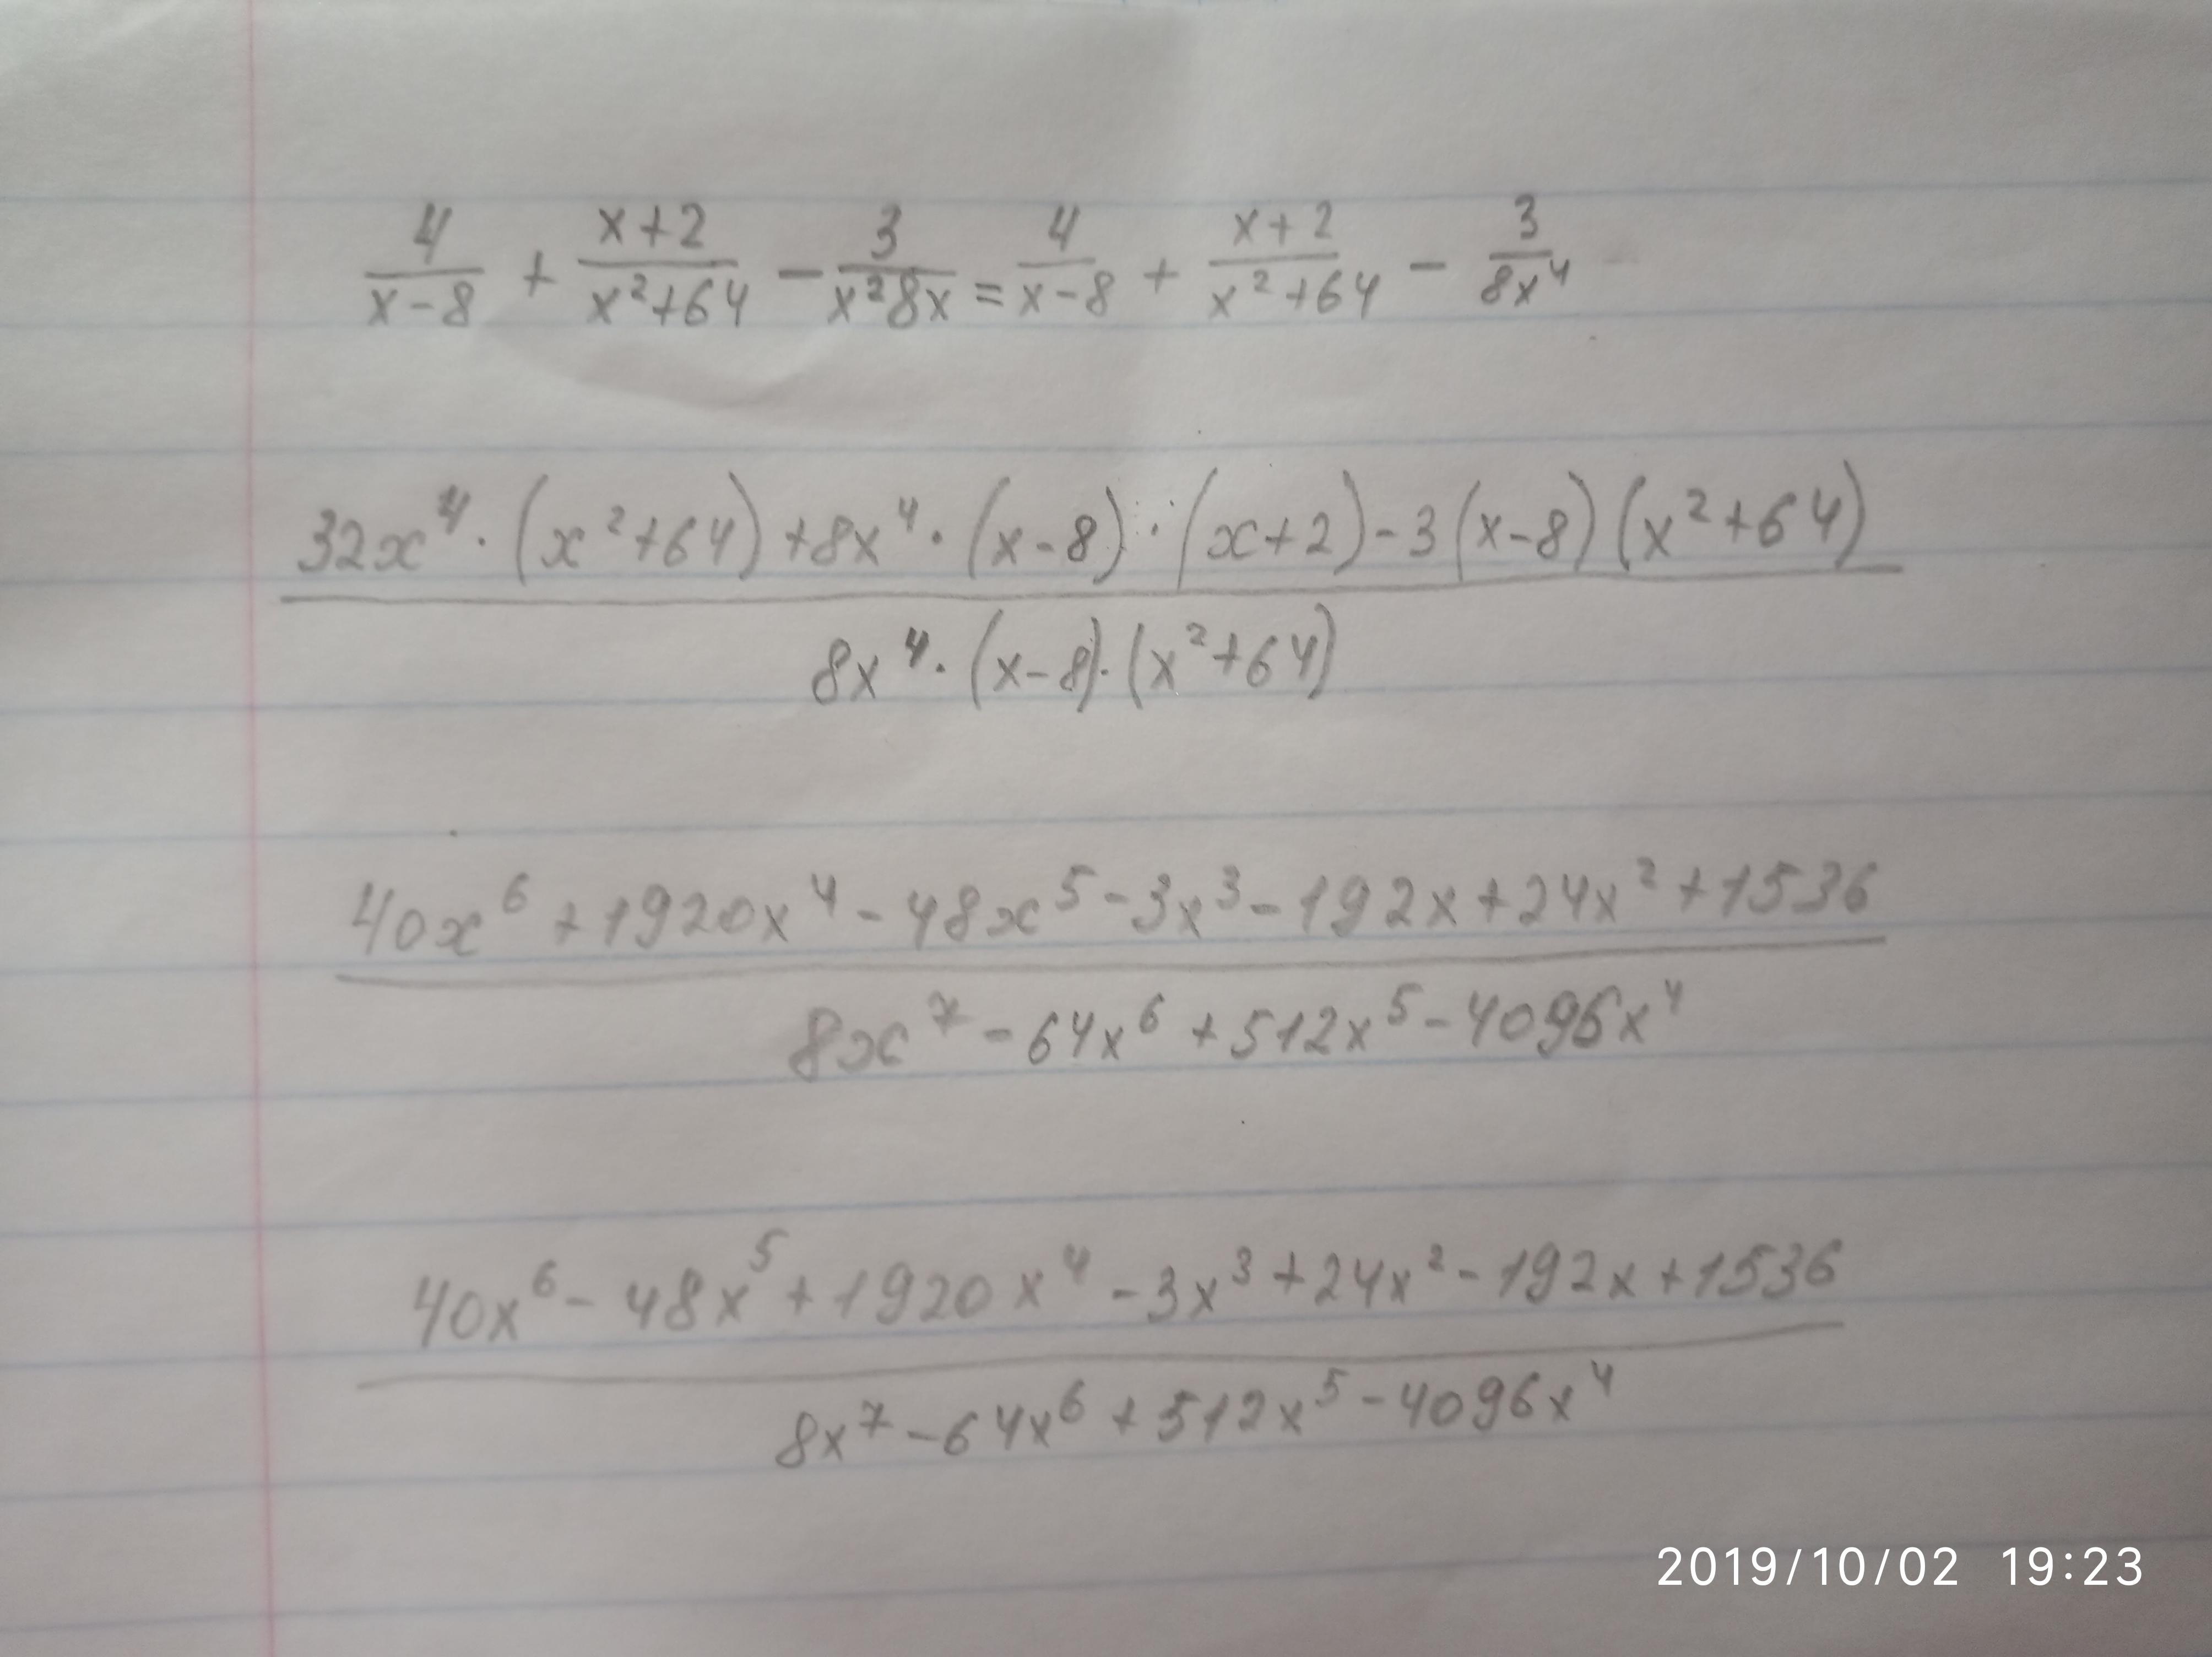 4/(x-8) + (x+2)/(x²+64) - 3/(x²8x) = 4/(x-8) + (x+2)/(x²+64) - 3/(8x⁴)
32x⁴·(x²+64)+8x⁴·(x-8)·(x+2)-3(x-8)(x²+64)
8x⁴·(x-8)·(x²+64)
40x⁶+1920x⁴-48x⁵-3x³-192x+24x²+1536
8x⁷-64x⁶+512x⁵-4096x⁴
40x⁶-48x⁵+1920x⁴-3x³+24x²-192x+1536
8x⁷-64x⁶+512x⁵-4096x⁴
2019/10/02 19:23